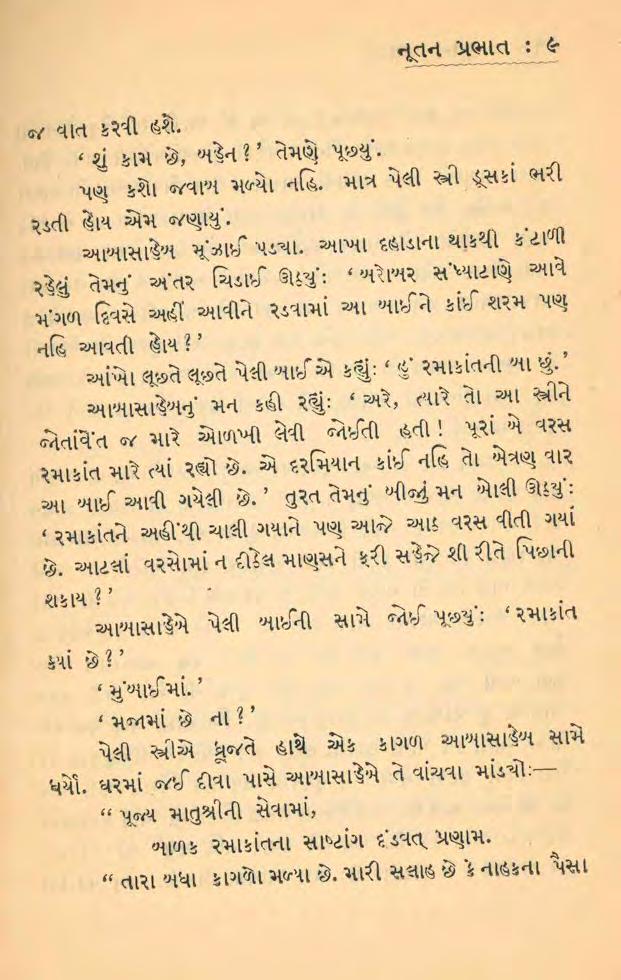 નૂતન પ્રભાત : ૯
જ વાત કરવી હશે.
‘ શું કામ છે, બહેન ? ’ તેમણે પૂછ્યું.
પણ કશો જવાબ મળ્યો નહિ. માત્ર પેલી સ્ત્રી ડૂસકાં ભરી
રડતી હોય એમ જણાયું.
આબાસાહેબ મૂંઝાઈ પડ્યા. આખા દહાડાના થાકથી કંટાળી
રહેલું તેમનું અંતર ચિડાઈ ઊઠ્યું: ‘ બરોબર સંધ્યાટાણે આવે
મંગળ દિવસે અહીં આવીને રડવામાં આ બાઈને કાંઈ શરમ પણ
નહિ આવતી હોય ? ’
આંખો લૂછતે લૂછતે પેલી બાઈએ કહ્યું: ‘ હું રમાકાંતની બા છું. ’
આબાસાહેબનું મન કહી રહ્યું: ‘ અરે, ત્યારે તો આ સ્ત્રીને
જોતાંવેંત જ મારે ઓળખી લેવી જોઈતી હતી ! પૂરાં બે વરસ
રમાકાંત મારે ત્યાં રહ્યો છે. એ દરમિયાન કાંઈ નહિ તો બેત્રણ વાર
આ બાઈ આવી ગયેલી છે. ’ તુરત તેમનું બીજું મન બોલી ઊઠ્યું:
‘ રમાકાંતને અહીંથી ચાલી ગયાને પણ આજે આઠ વરસ વીતી ગયાં
છે. આટલાં વરસોમાં ન દીઠેલ માણસને ફરી સહેજે શી રીતે પિછાની
શકાય ? ’
આબાસાહેબે પેલી બાઈની સામે જોઈ પૂછ્યું: ‘ રમાકાંત
ક્યાં છે ? ’
‘ મુંબાઈમાં. ’
‘ મજામાં છે ના ? ’
પેલી સ્ત્રીએ ધ્રૂજતે હાથે એક કાગળ આબાસાહેબ સામે
ધર્યો. ઘરમાં જઈ દીવા પાસે આબાસાહેબે તે વાંચવા માંડ્યો:—
“ પૂજ્ય માતુશ્રીની સેવામાં,
બાળક રમાકાંતના સાષ્ટાંગ દંડવત્ પ્રણામ.
“ તારા બધા કાગળો મળ્યા છે. મારી સલાહ છે કે નાહકના પૈસા